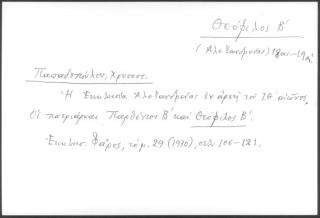 Θεόφιλος Β΄
(Αλεξανδρείας) 18ος-19ος
Παπαδοπούλου, Χρυσοστ.
Ἡ Ἐκκλησία Ἀλεξανδρείας ἐν ἀρχῇ τοῦ ΙΘ΄ αἰῶνος,
Οἱ πατριάρχαι Παρθένιος Β΄ καὶ Θεόφιλος Β΄.
Ἐκκλησ. Φάρος, τόμ. 29 (1930), σελ. 106-121.